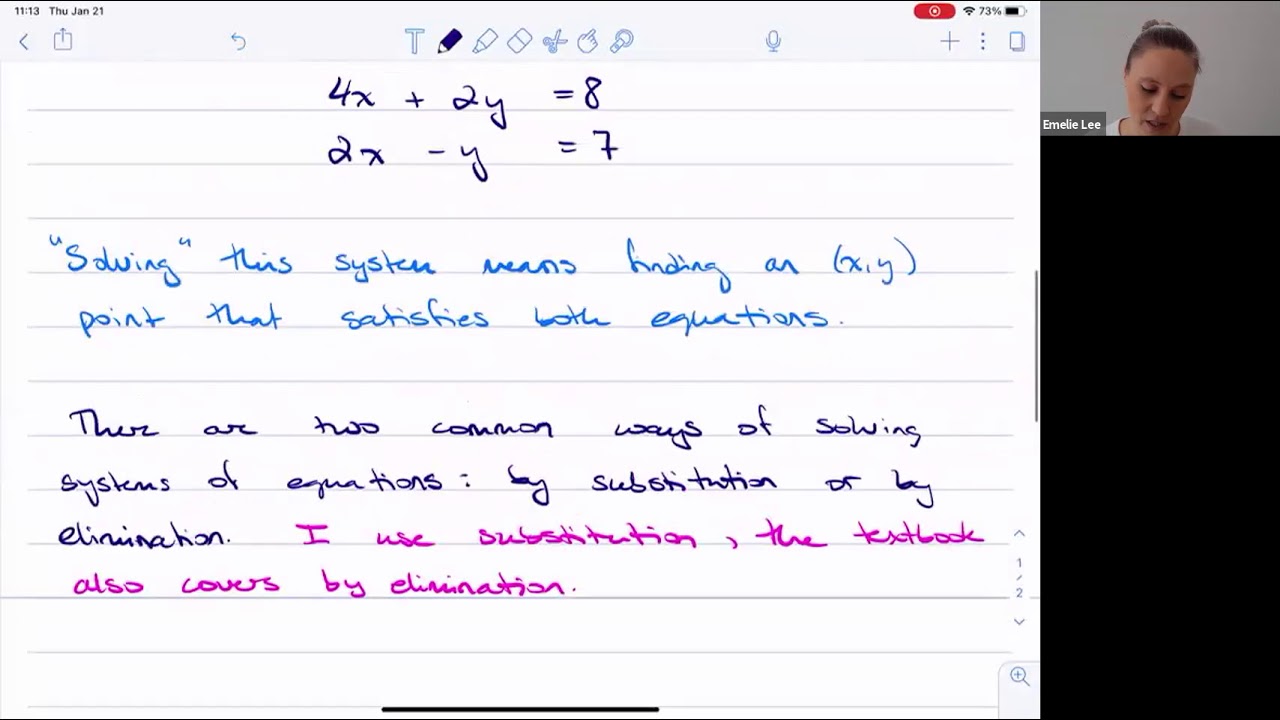 11:13 Thu Jan 21
73%
4x + 2y = 8
2x - y = 7
Emelie Lee
"Solving" this system means finding an (x,y)
point that satisfies both equations.
There are two common ways of solving
systems of equations: by substitution or by
elimination. I use substitution, the textbook
also covers by elimination.
1
2